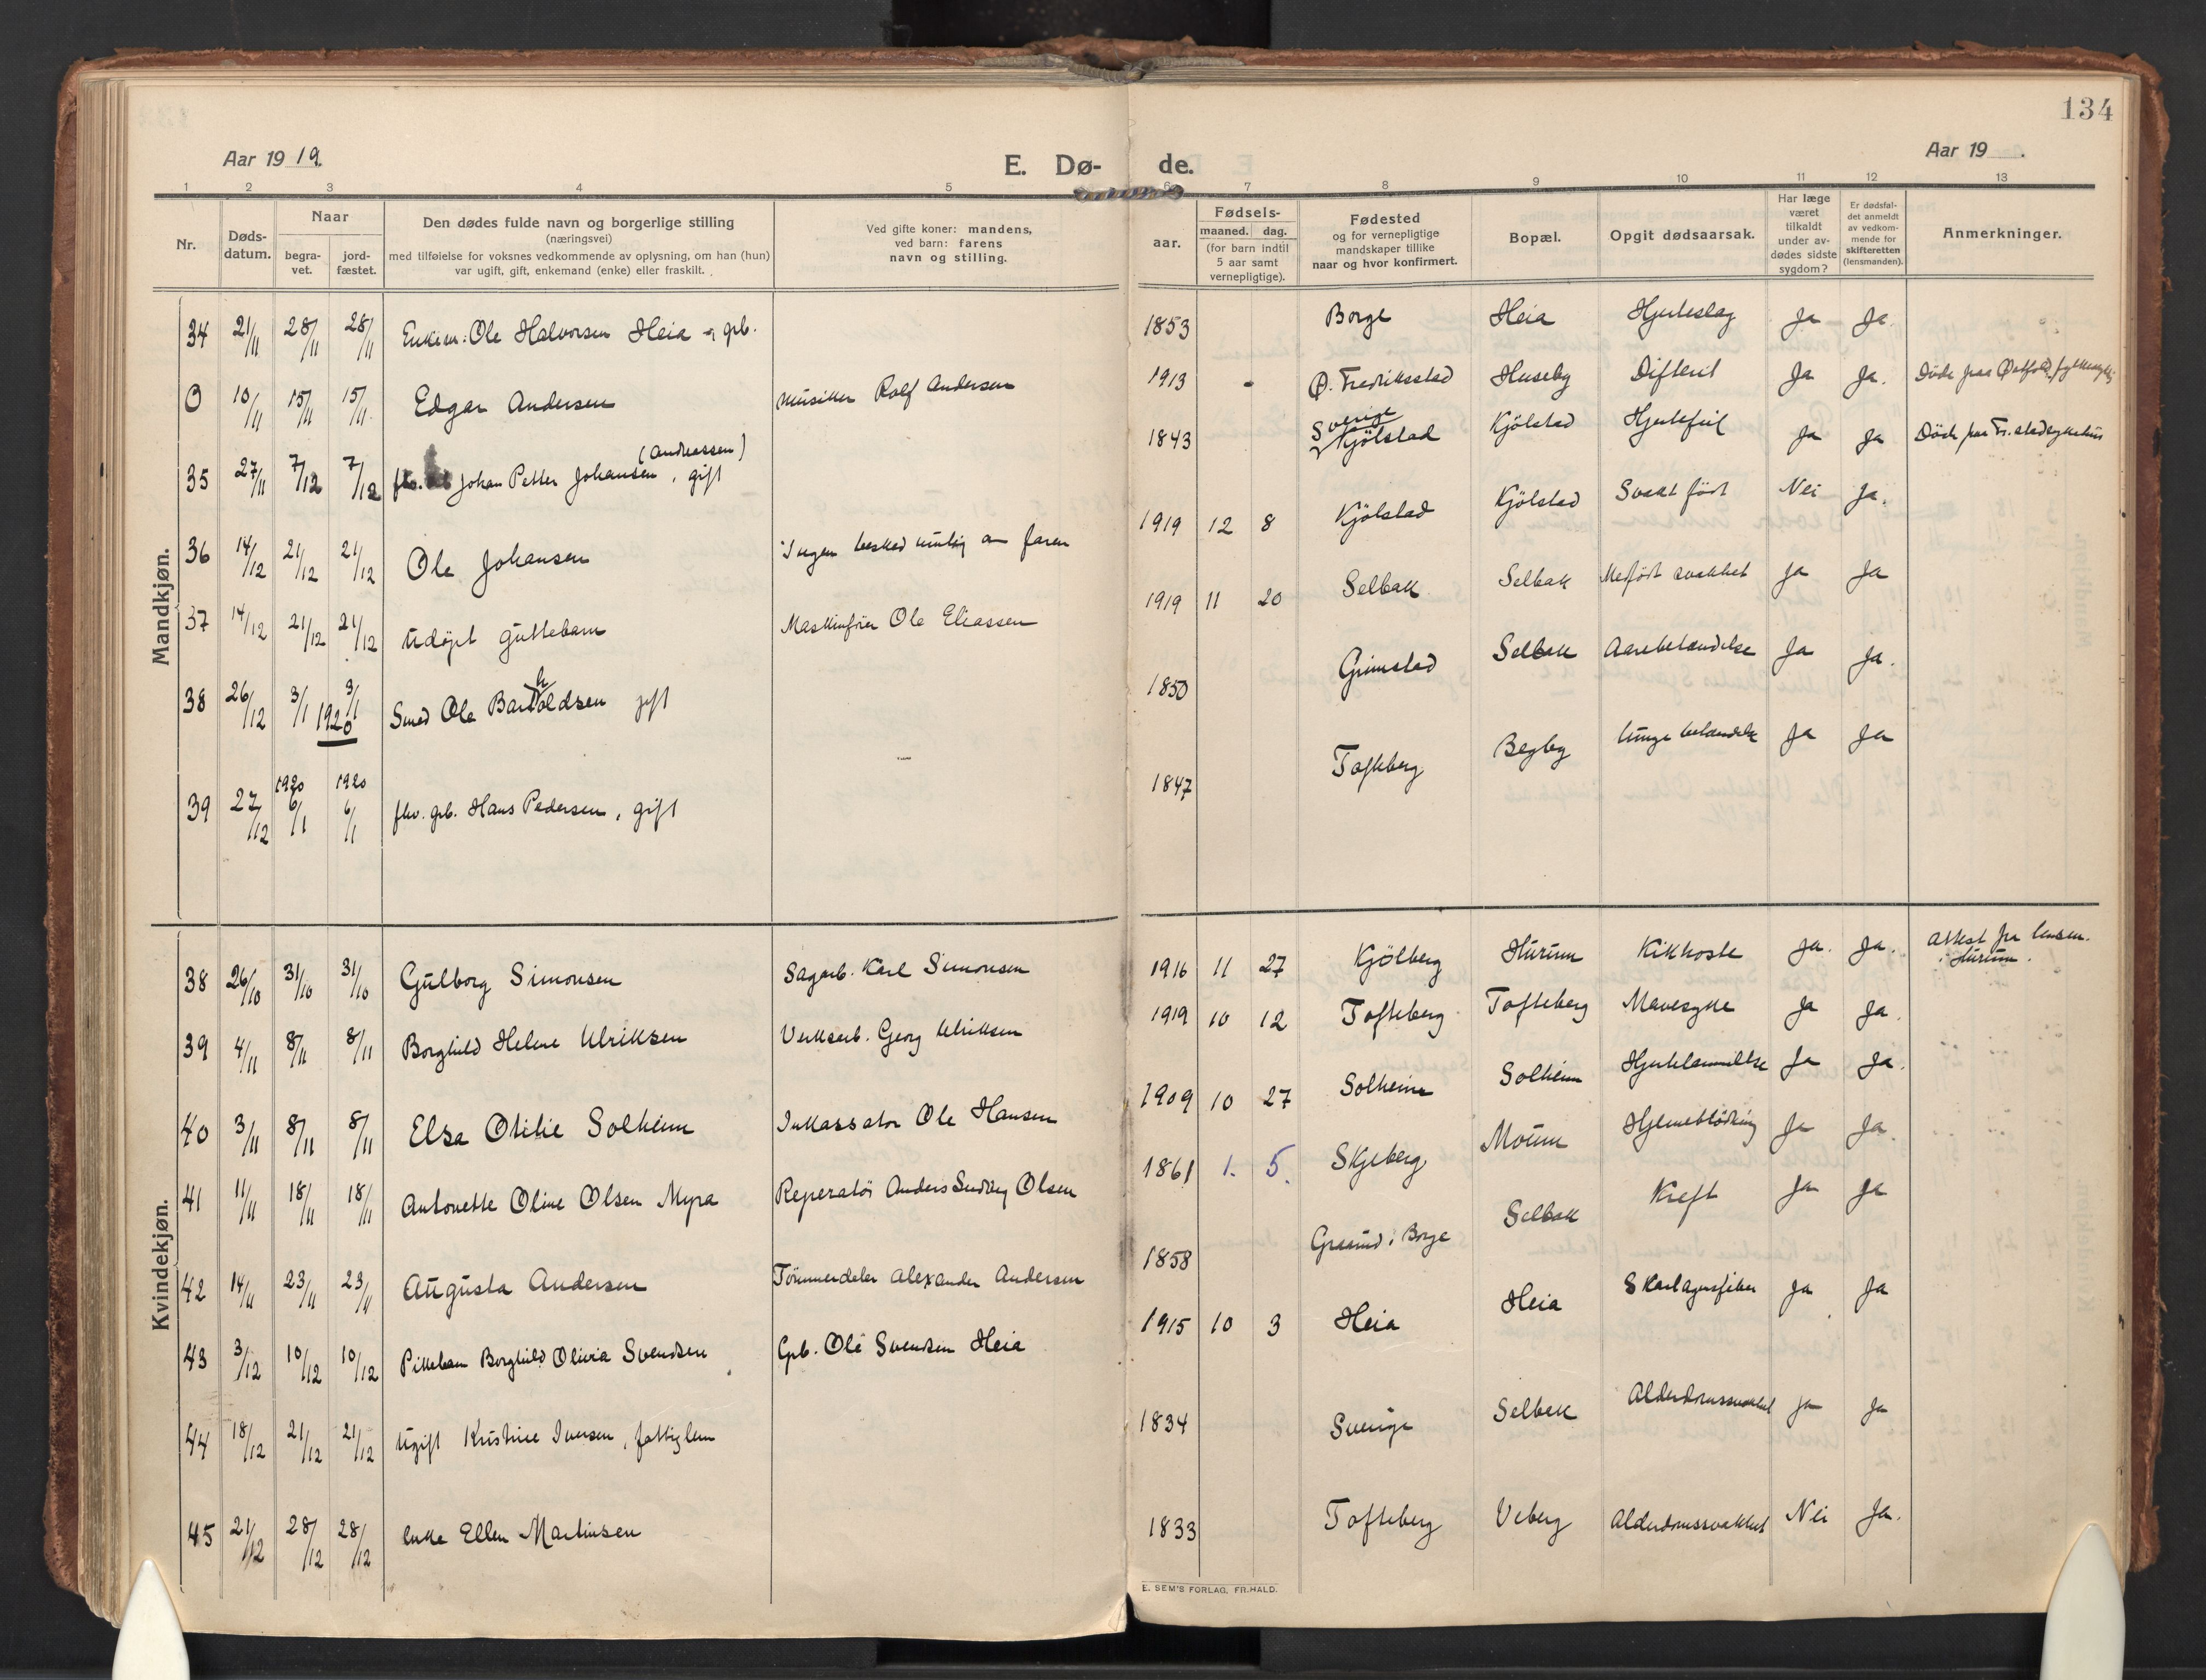 134
Aar 1919.
E. Dø- de.
Aar 19 .
1 2 3 4 5 6 7 8 9 10 11 12 13
Nr.
Døds-
datum.
Naar
begra-
vet.
jord-
fæstet.
Den dødes fulde navn og borgerlige stilling
(næringsvei)
med tilføielse for voksnes vedkommende av oplysning, om han (hun)
var ugift, gift, enkemand (enke) eller fraskilt.
Ved gifte koner: mandens,
ved barn: farens
navn og stilling.
Fødsels-
aar.
maaned. dag.
(for barn indtil
5 aar samt
vernepligtige).
Fødested
og for vernepligtige
mandskaper tillike
naar og hvor konfirmert.
Bopæl.
Opgit dødsaarsak.
Har læge
været
tilkaldt
under av-
dødes sidste
sygdom?
Er dødsfal-
det anmeldt
av vedkom-
mende for
skifteretten
(lensmanden).
Anmerkninger.
Mandkjøn.
34 21/11 28/11 28/11 Enkem. Ole Halvorsen Heia grb. 1853 Borge Heia Hjerteslag Ja Ja
0 10/11 15/11 15/11 Edgar Andersen Musiker Rolf Andersen 1913 - Ø. Fredriksstad Huseby Difterit Ja Ja. Døde paa Østfold fylkessykeh.
(Andreassen)
35 27/11 7/12 7/12 fhv. Johan Petter Johansen, gift 1843 Sverige Kjölstad Kjölstad Hjertefeil Ja Ja Døde paa Fr.stad sykehus
36 14/12 21/12 21/12 Ole Johansen Ingen besked mulig om faren 1919 12 8 Kjölstad Kjölstad Svakt født Nei Ja.
37 14/12 21/12 21/12 Udöpt guttebarn Maskinfører Ole Eliassen 1919 11 20 Selbak Selbak Medfødt svakhet Ja Ja
38 26/12 3/1 3/1 1920 Smed Ole Bartholdsen gift 1850 Grimstad Selbak Aarebetændelse Ja Ja.
1920 1920
39 27/12 6/1 6/1 fhv. grb. Hans Pedersen, gift 1847 Tofteberg Begby Lungebetændelse Ja Ja
Kvindekjøn.
38 26/10 31/10 31/10 Gulborg Simonsen Sagarb. Karl Simonsen 1916 11 27 Kjölberg Hurum Kikhoste Ja. Ja. Attest fra lensm. i Hurum.
39 4/11 8/11 8/11 Borghild Helene Ulriksen Verksarb. Georg Ulriksen 1919 10 12 Tofteberg Tofteberg Mavesyke Ja Ja.
40 3/11 8/11 8/11 Elsa Otilie Solheim Inkassator Ole Hansen 1909 10 27 Solheim Solheim Hjertelammelse Ja Ja.
41 11/11 18/11 18/11 Antonette Oline Olsen Myra Reperatör Anders Olsen 1861 1. 5. Skjeberg Moum Hjerneblödning Ja Ja.
42 14/11 23/11 23/11 Augusta Andersen Tömmerdeler Alexander Andersen 1858 Graarud i Borge Selbak Kreft Ja Ja
43 3/12 10/12 10/12 Pikebarn Borghild Olivia Svendsen Grb. Ole Svendsen Heia 1915 10 3 Heia Heia Skarlagensfeber Ja Ja
44 18/12 21/12 21/12 Ugift Kristine Iversen, fattiglem 1834 Sverige Selbak Alderdomssvakhet Ja Ja
45 21/12 28/12 28/12 Enke Ellen Martinsen 1833 Tofteberg Veberg Alderdomssvakhet Nei Ja.
E. SEM'S FORLAG, FR.HALD.